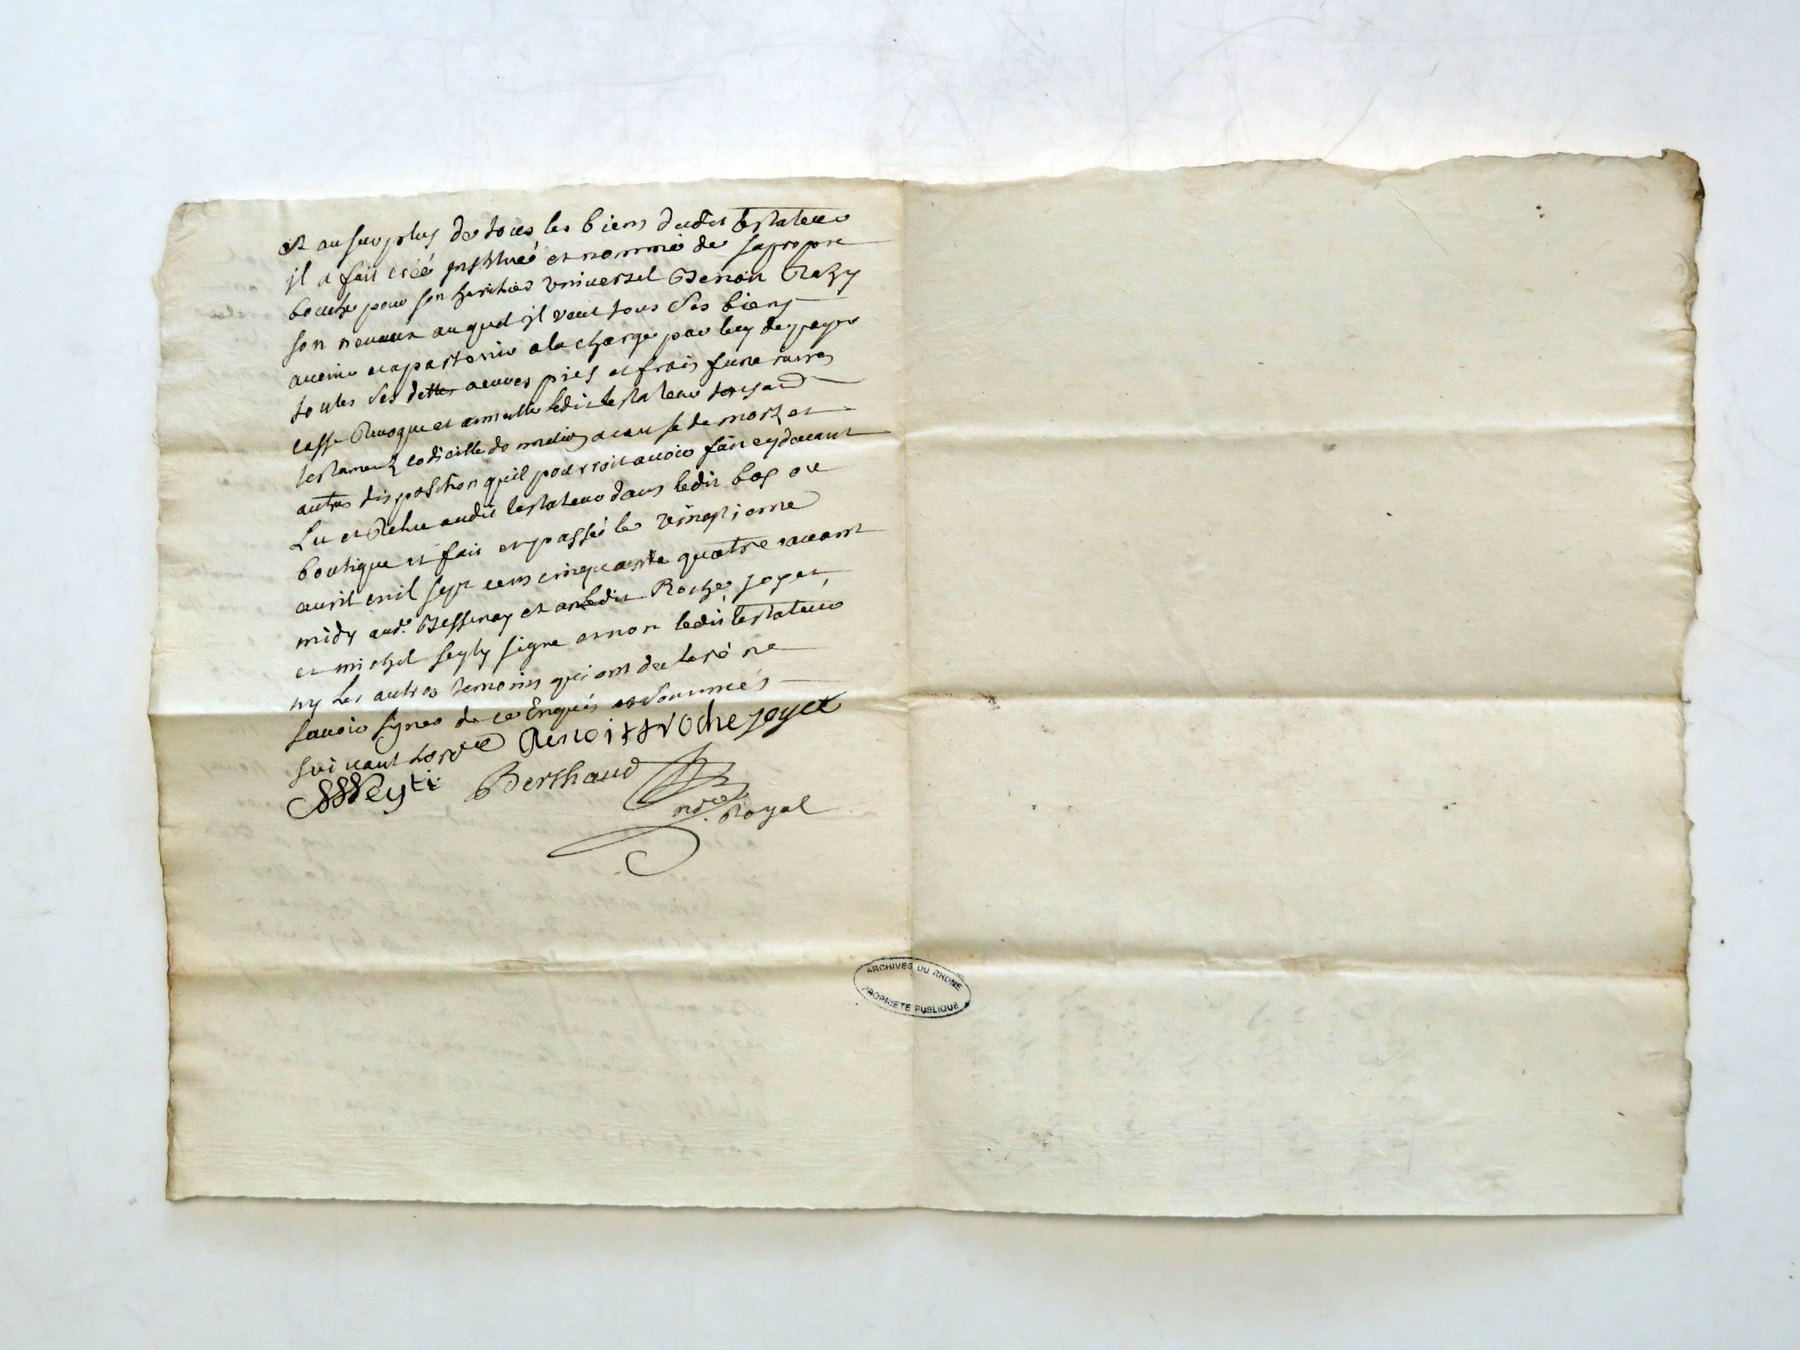 et au surplus de tous les biens dudit testateur
il a fait créé institué et nommé de sa propre
bouche pour son heritier universel Benoit
son neveux auquel il veut tous ses biens
avenir et apartenir a la charge par luy de payer
toutes ses dettes œuvres pies et frais funeraires
casse revoque et annulle ledit testateur tous
testament codicille donnation a cause de mort et
autres disposition qu'il pourroit avoir fait cydevant
Lu et Relu audit testateur dans ledit bas ou
boutique et fait et passé le vingtieme
avril mil sept cens cinquante quatre avant
midy aud. Bessenay et ont ledit Roche joyet
et michel signe et non ledit testateur
ny Les autres temoins qui ont declaré ne
savoir signer de ce Enquis et sommés
suivant Lord.ce Benoit roche joyet
Berthaud
no.re Royal
ARCHIVES DU RHONE
PROPRIETE PUBLIQUE